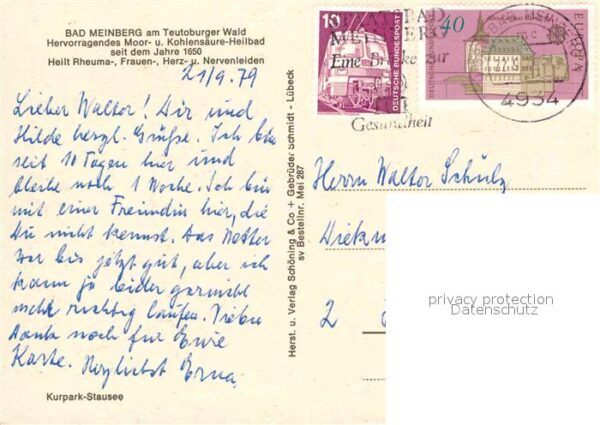 BAD MEINBERG am Teutoburger Wald
Hervorragendes Moor- u. Kohlensäure-Heilbad
seit dem Jahre 1650
Heilt Rheuma-, Frauen-, Herz- u. Nervenleiden
21/9.79
Lieber Walter! Dir und
Hilde herzl. Grüße. Ich bin
seit 10 Tagen hier und
bleibe noch 1 Woche. Ich bin
mit einer Freundin hier, die
Du nicht kennst. Das Wetter
war bis jetzt gut, aber ich
kann ja leider garnicht
mehr richtig laufen. Vielen
Dank noch für Eure
Karte. Herzlichst Erna
Kurpark-Stausee
Herst. u. Verlag Schöning & Co + Gebrüder Schmidt - Lübeck
sv Bestellnr. Mei 287
10
DEUTSCHE BUNDESPOST
40
EUROPA
Eine Brücke zur
Gesundheit
4934
Herrn Walter Schulz
2
privacy protection
Datenschutz